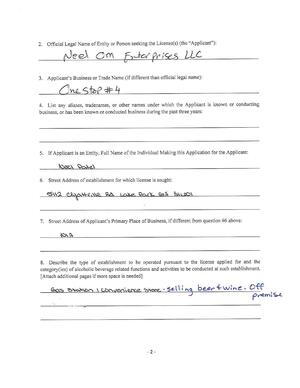 2. Official Legal Name of Entity or Person seeking the License(s) (the "Applicant"):
Neel Om Enterprises LLC
3. Applicant's Business or Trade Name (if different than official legal name):
One Stop #4
4. List any aliases, tradenames, or other names under which the Applicant is known or conducting
business, or has been known or conducted business during the past three years:
5. If Applicant is an Entity, Full Name of the Individual Making this Application for the Applicant:
Patel
6. Street Address of establishment for which license is sought:
Rd. Lake Park
7. Street Address of Applicant's Primary Place of Business, if different from question #6 above:
8. Describe the type of establishment to be operated pursuant to the license applied for and the
category(ies) of alcoholic beverage related functions and activities to be conducted at such establishment.
[Attach additional pages if more space is needed]
Gas Station / Convenience Store - Selling beer & wine. Off
premise
- 2 -